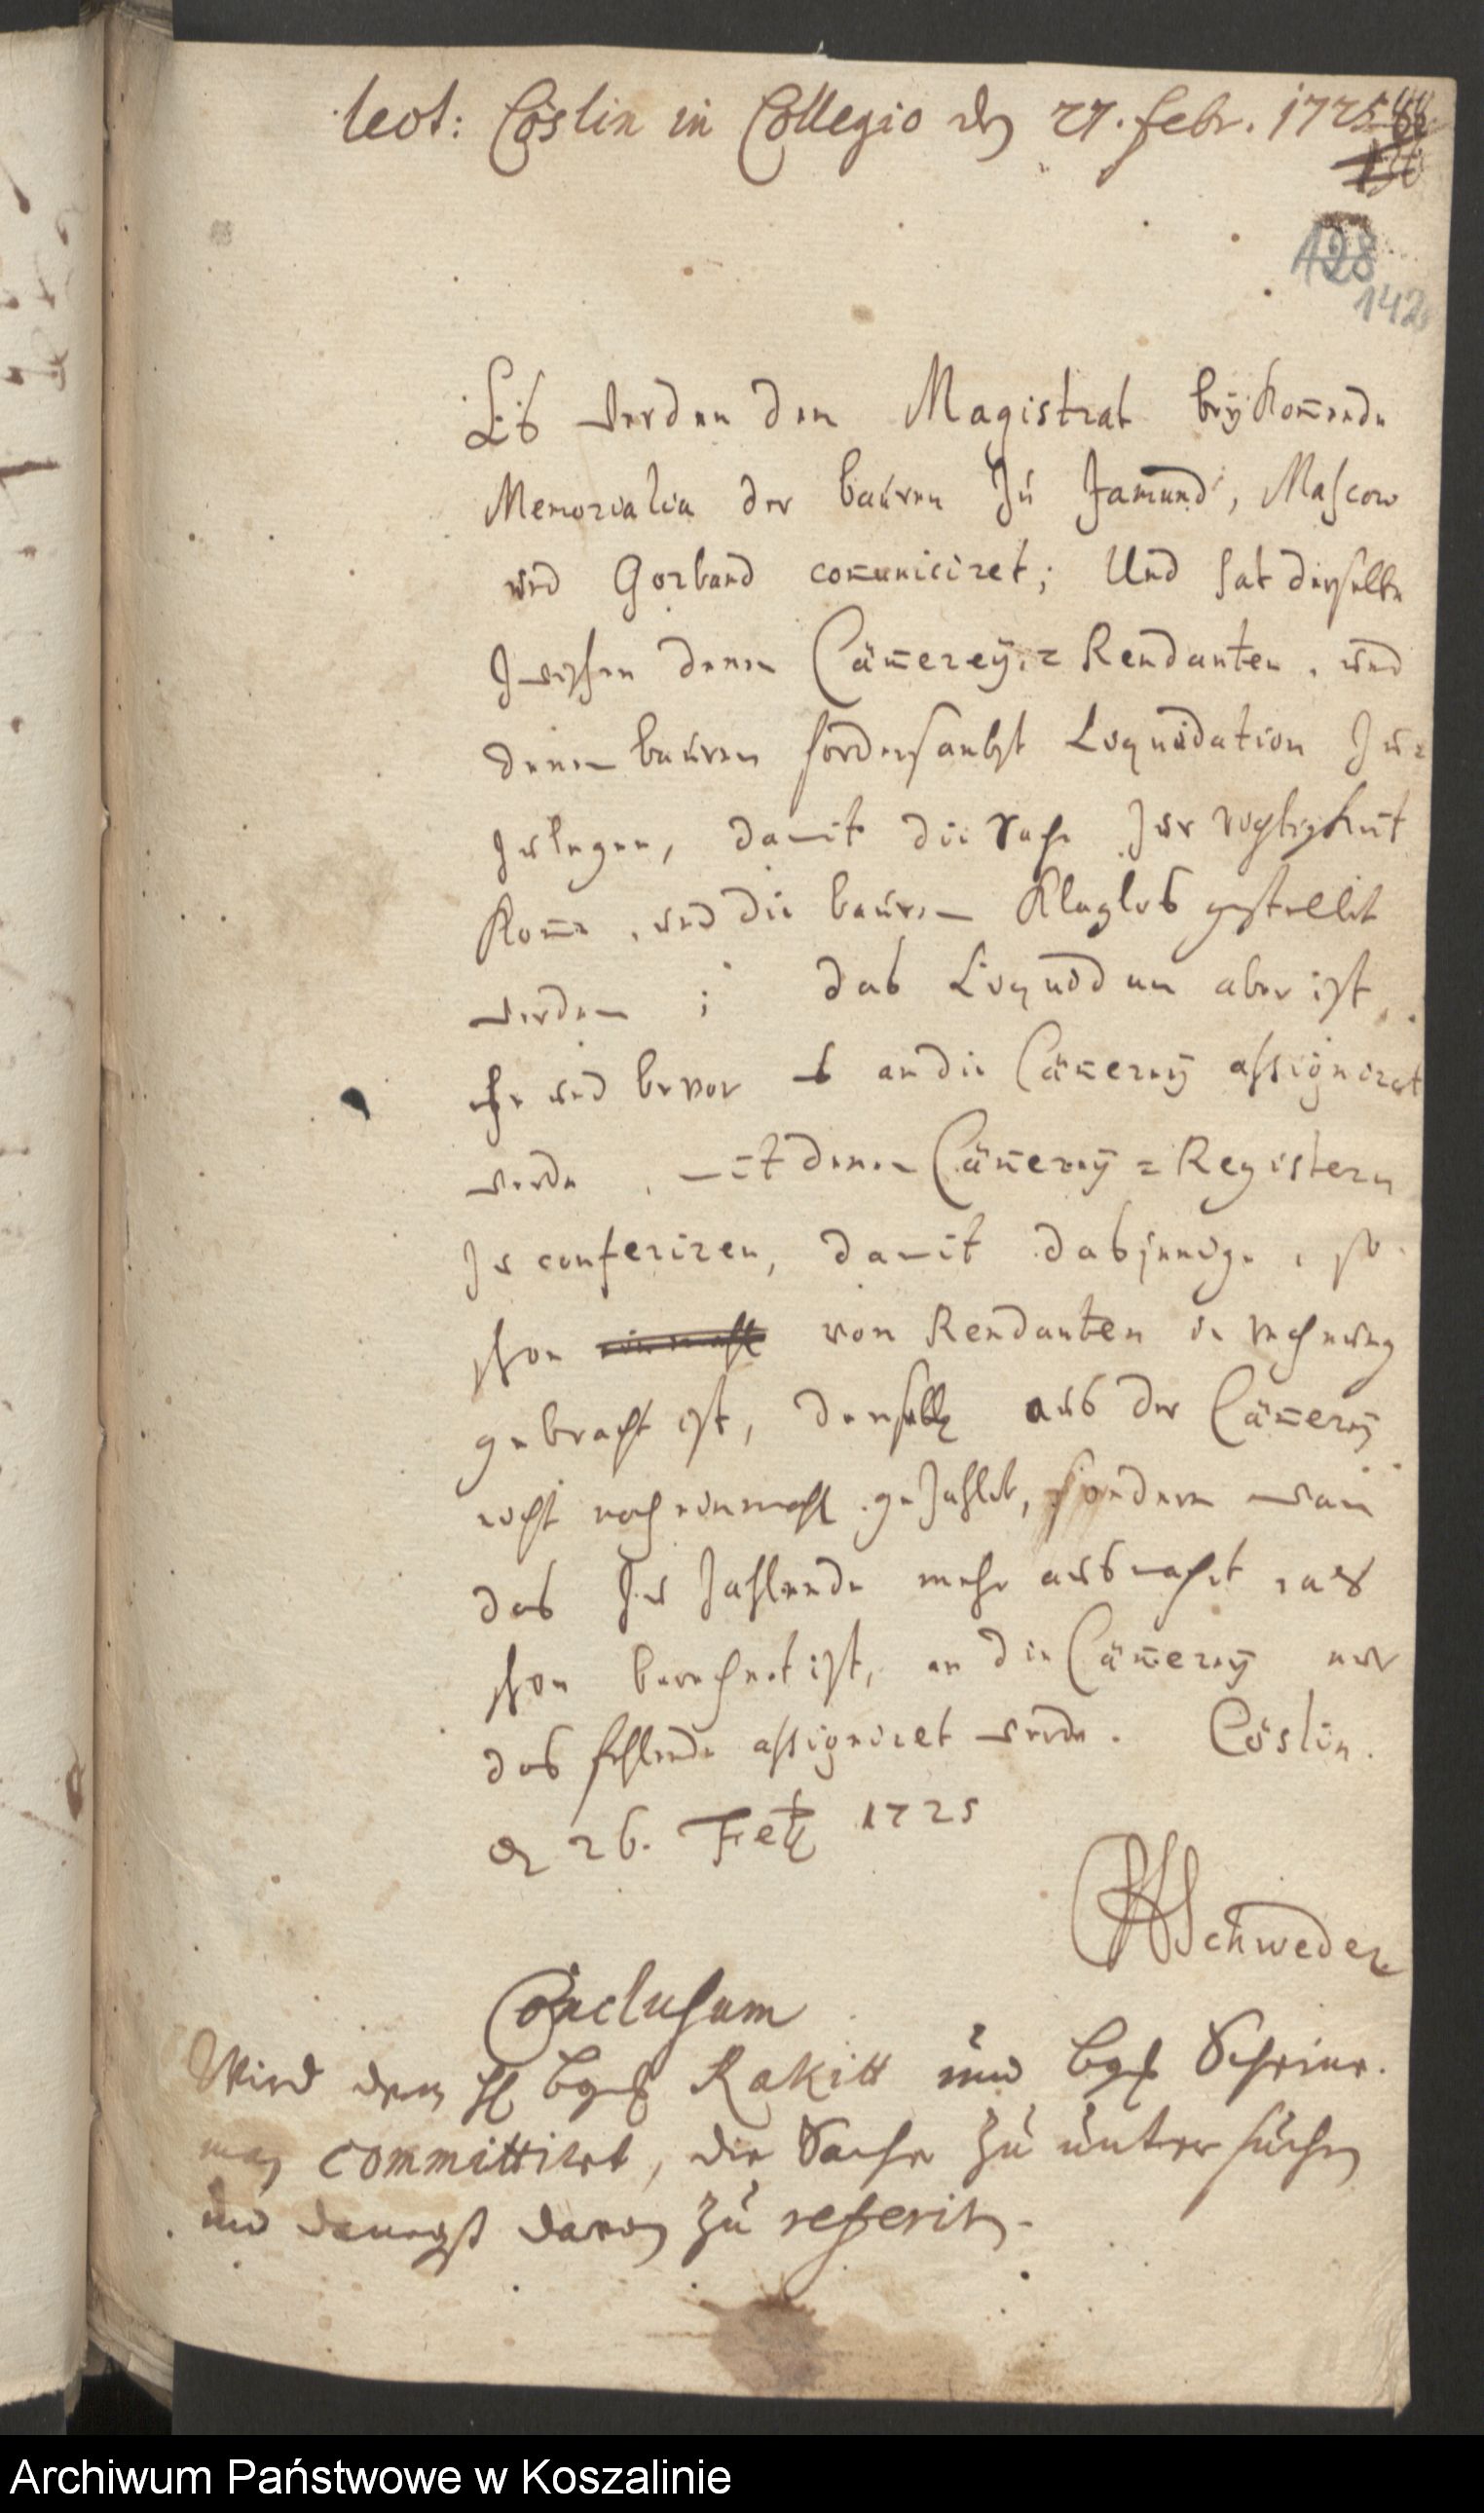 lect: Cöslin in Collegio den 27. febr. 1725
128
142
Es werden dem Magistrat beÿkom̄ende
Memorialia der bauren Zu Jamund, Mascow
und Gorband com̄uniciret; Und hat derselbe
Zwischen denen Cäm̄ereÿ= Rendanten, und
denen bauren fordersambst Liquidation Zu=
Zulegen, damit die Sache Zur richtigkeit
Kom̄e, und die bauren Klaglos gestellet
werden; das Liquidum aber ist,
ehe und bevor es an die Cäm̄ereÿ assigniret
werde, mit denen Cäm̄ereÿ = Registern
Zu conferiren, damit dasjenige, so
schon einmahl von Rendanten in rechnung
gebracht ist, denselben aus der Cäm̄ereÿ
nicht noch einmahl gezahlet, sondern wan
das Zu Zahlende mehr ausmachet, als
schon berechnet ist, an die Cäm̄ereÿ nur
das fehlende assigniret werde. Cöslin.
d 26. Feb 1725
Schweder
Conclusum
Wird dem H Bgm Rakitt und Bgm Scheine-
man committiret, die Sache zu untersuchen
und demnegst davon zu referiren.
Archiwum Państwowe w Koszalinie